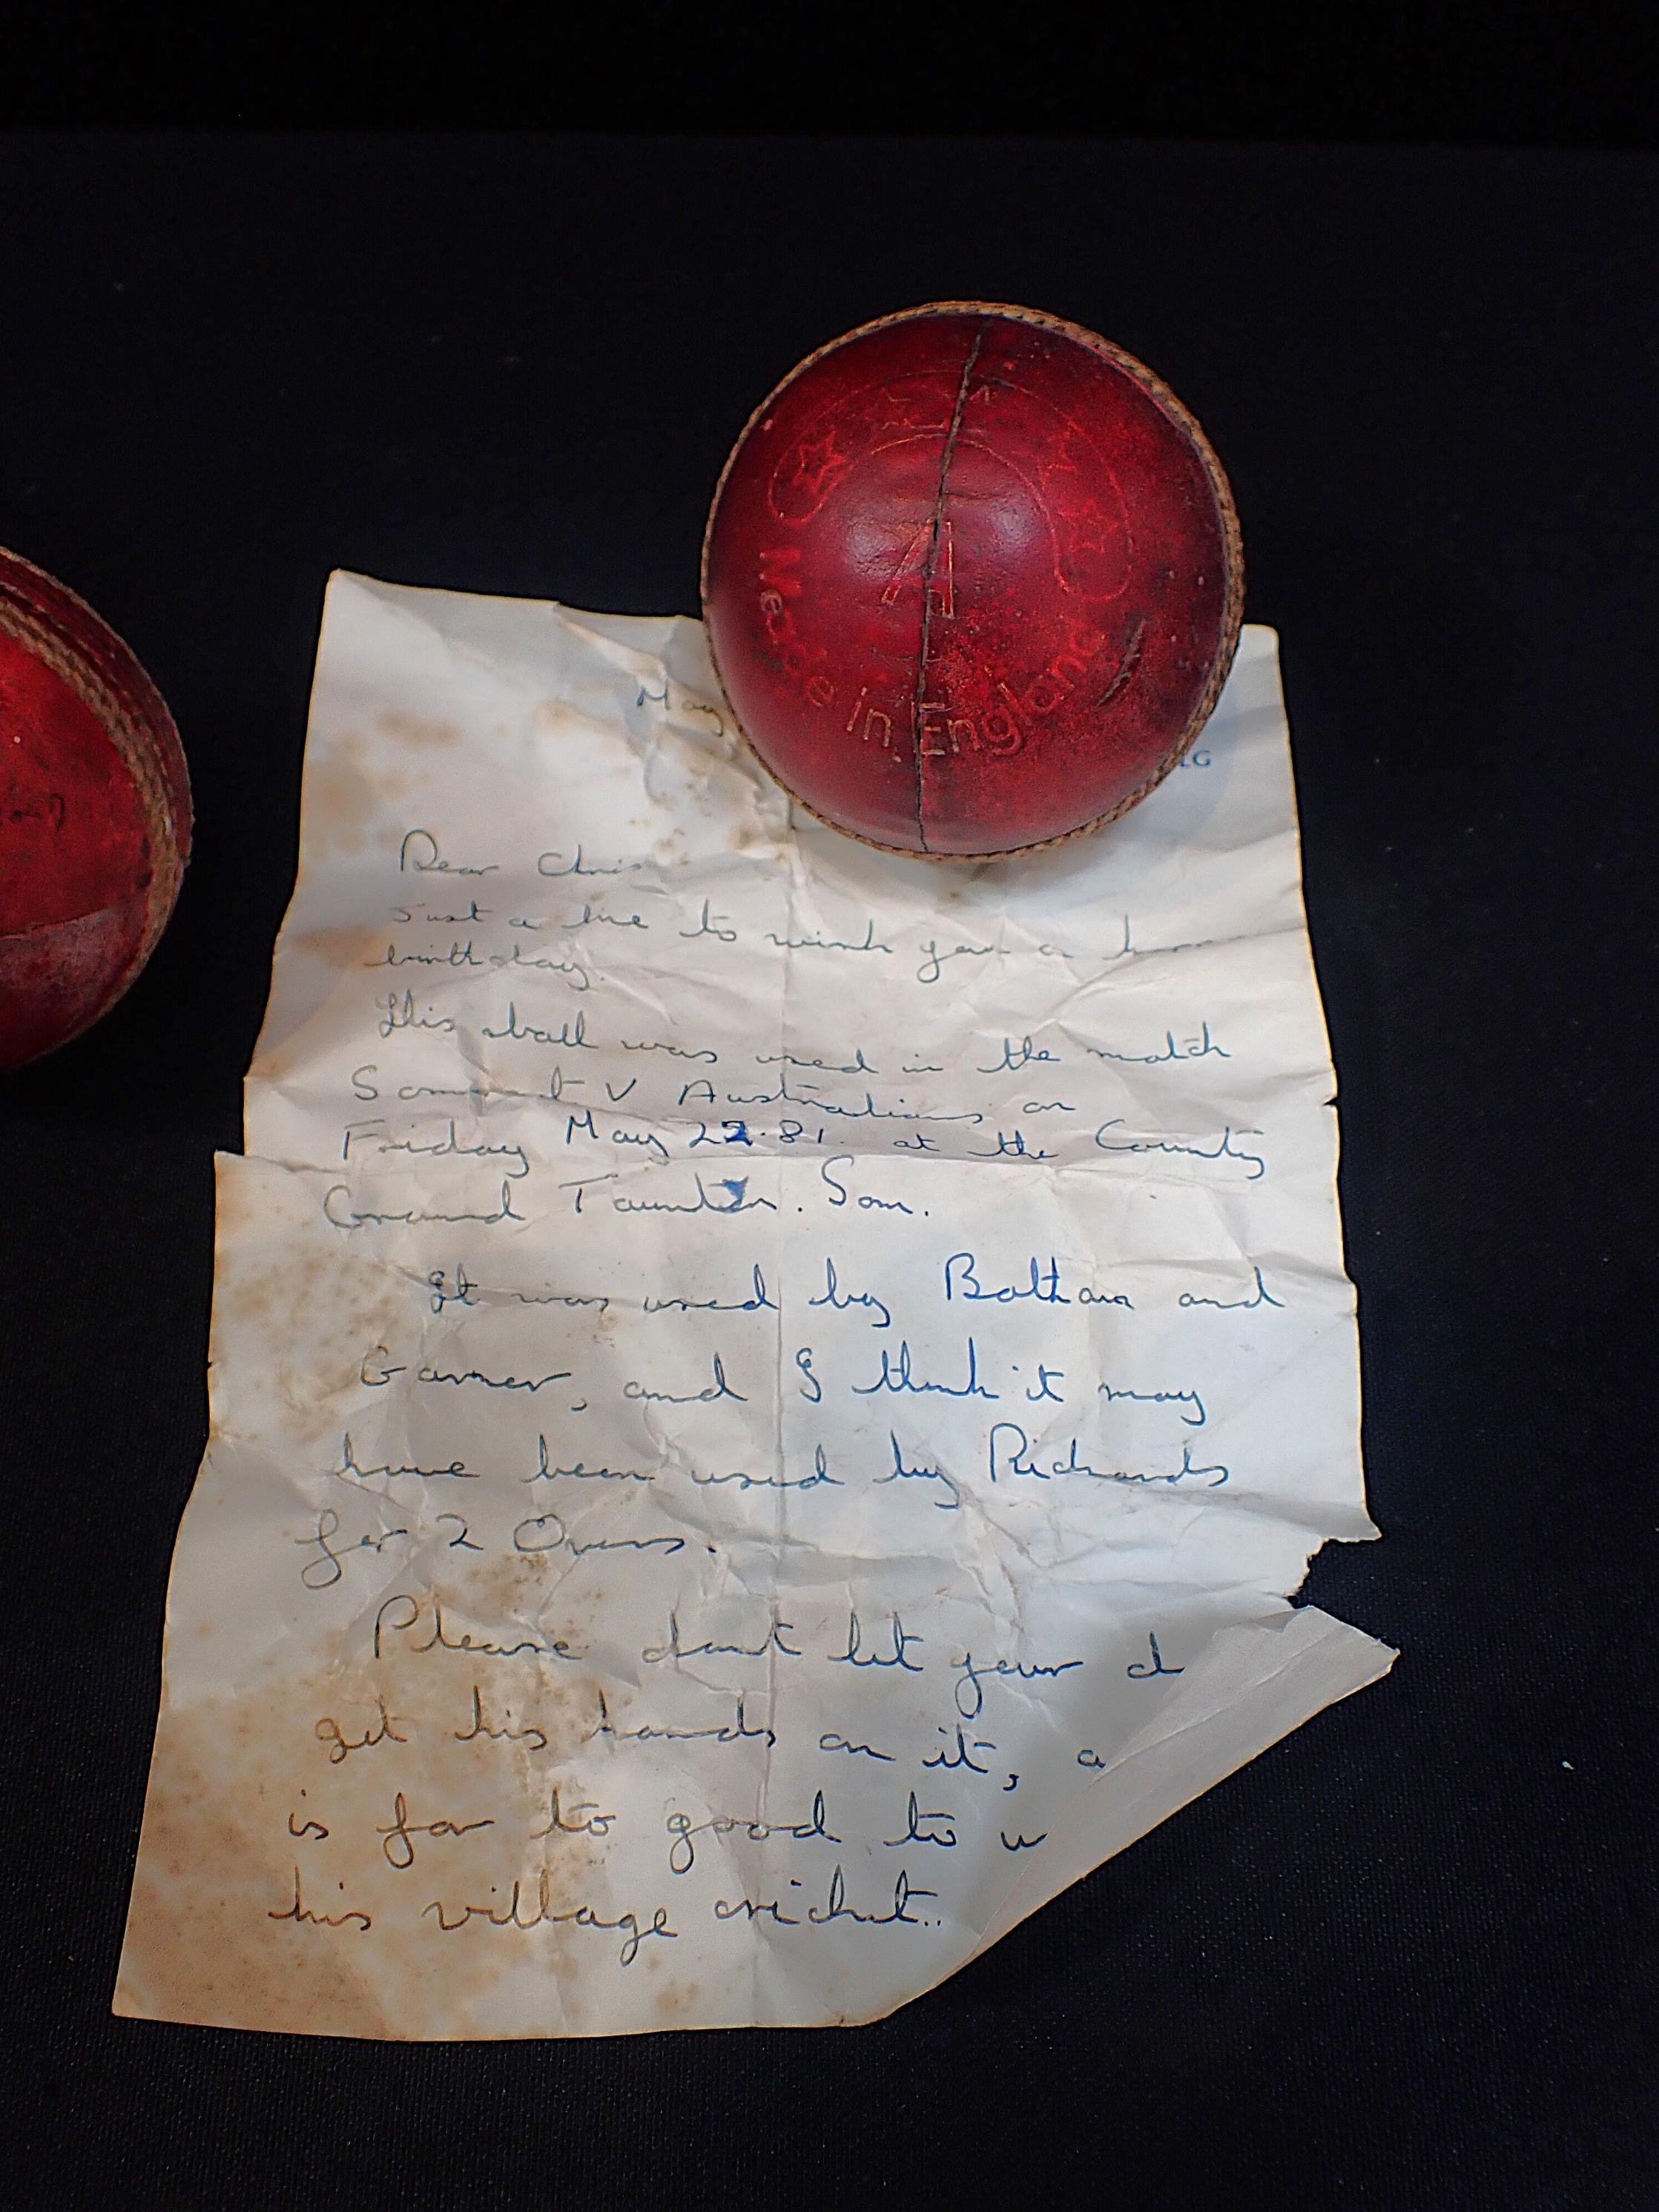 A
Made in England
May
LG
Dear Chris
Just a line to wish you a
birthday.
This ball was used in the match
Somerset V Australians on
Friday May 22.81. at the County
Ground Taunton. Som.
It was used by Botham and
Garner, and I think it may
have been used by Richards
for 2 Overs.
Please dont let your d
get his hands on it, a
is far to good to u
his village cricket..